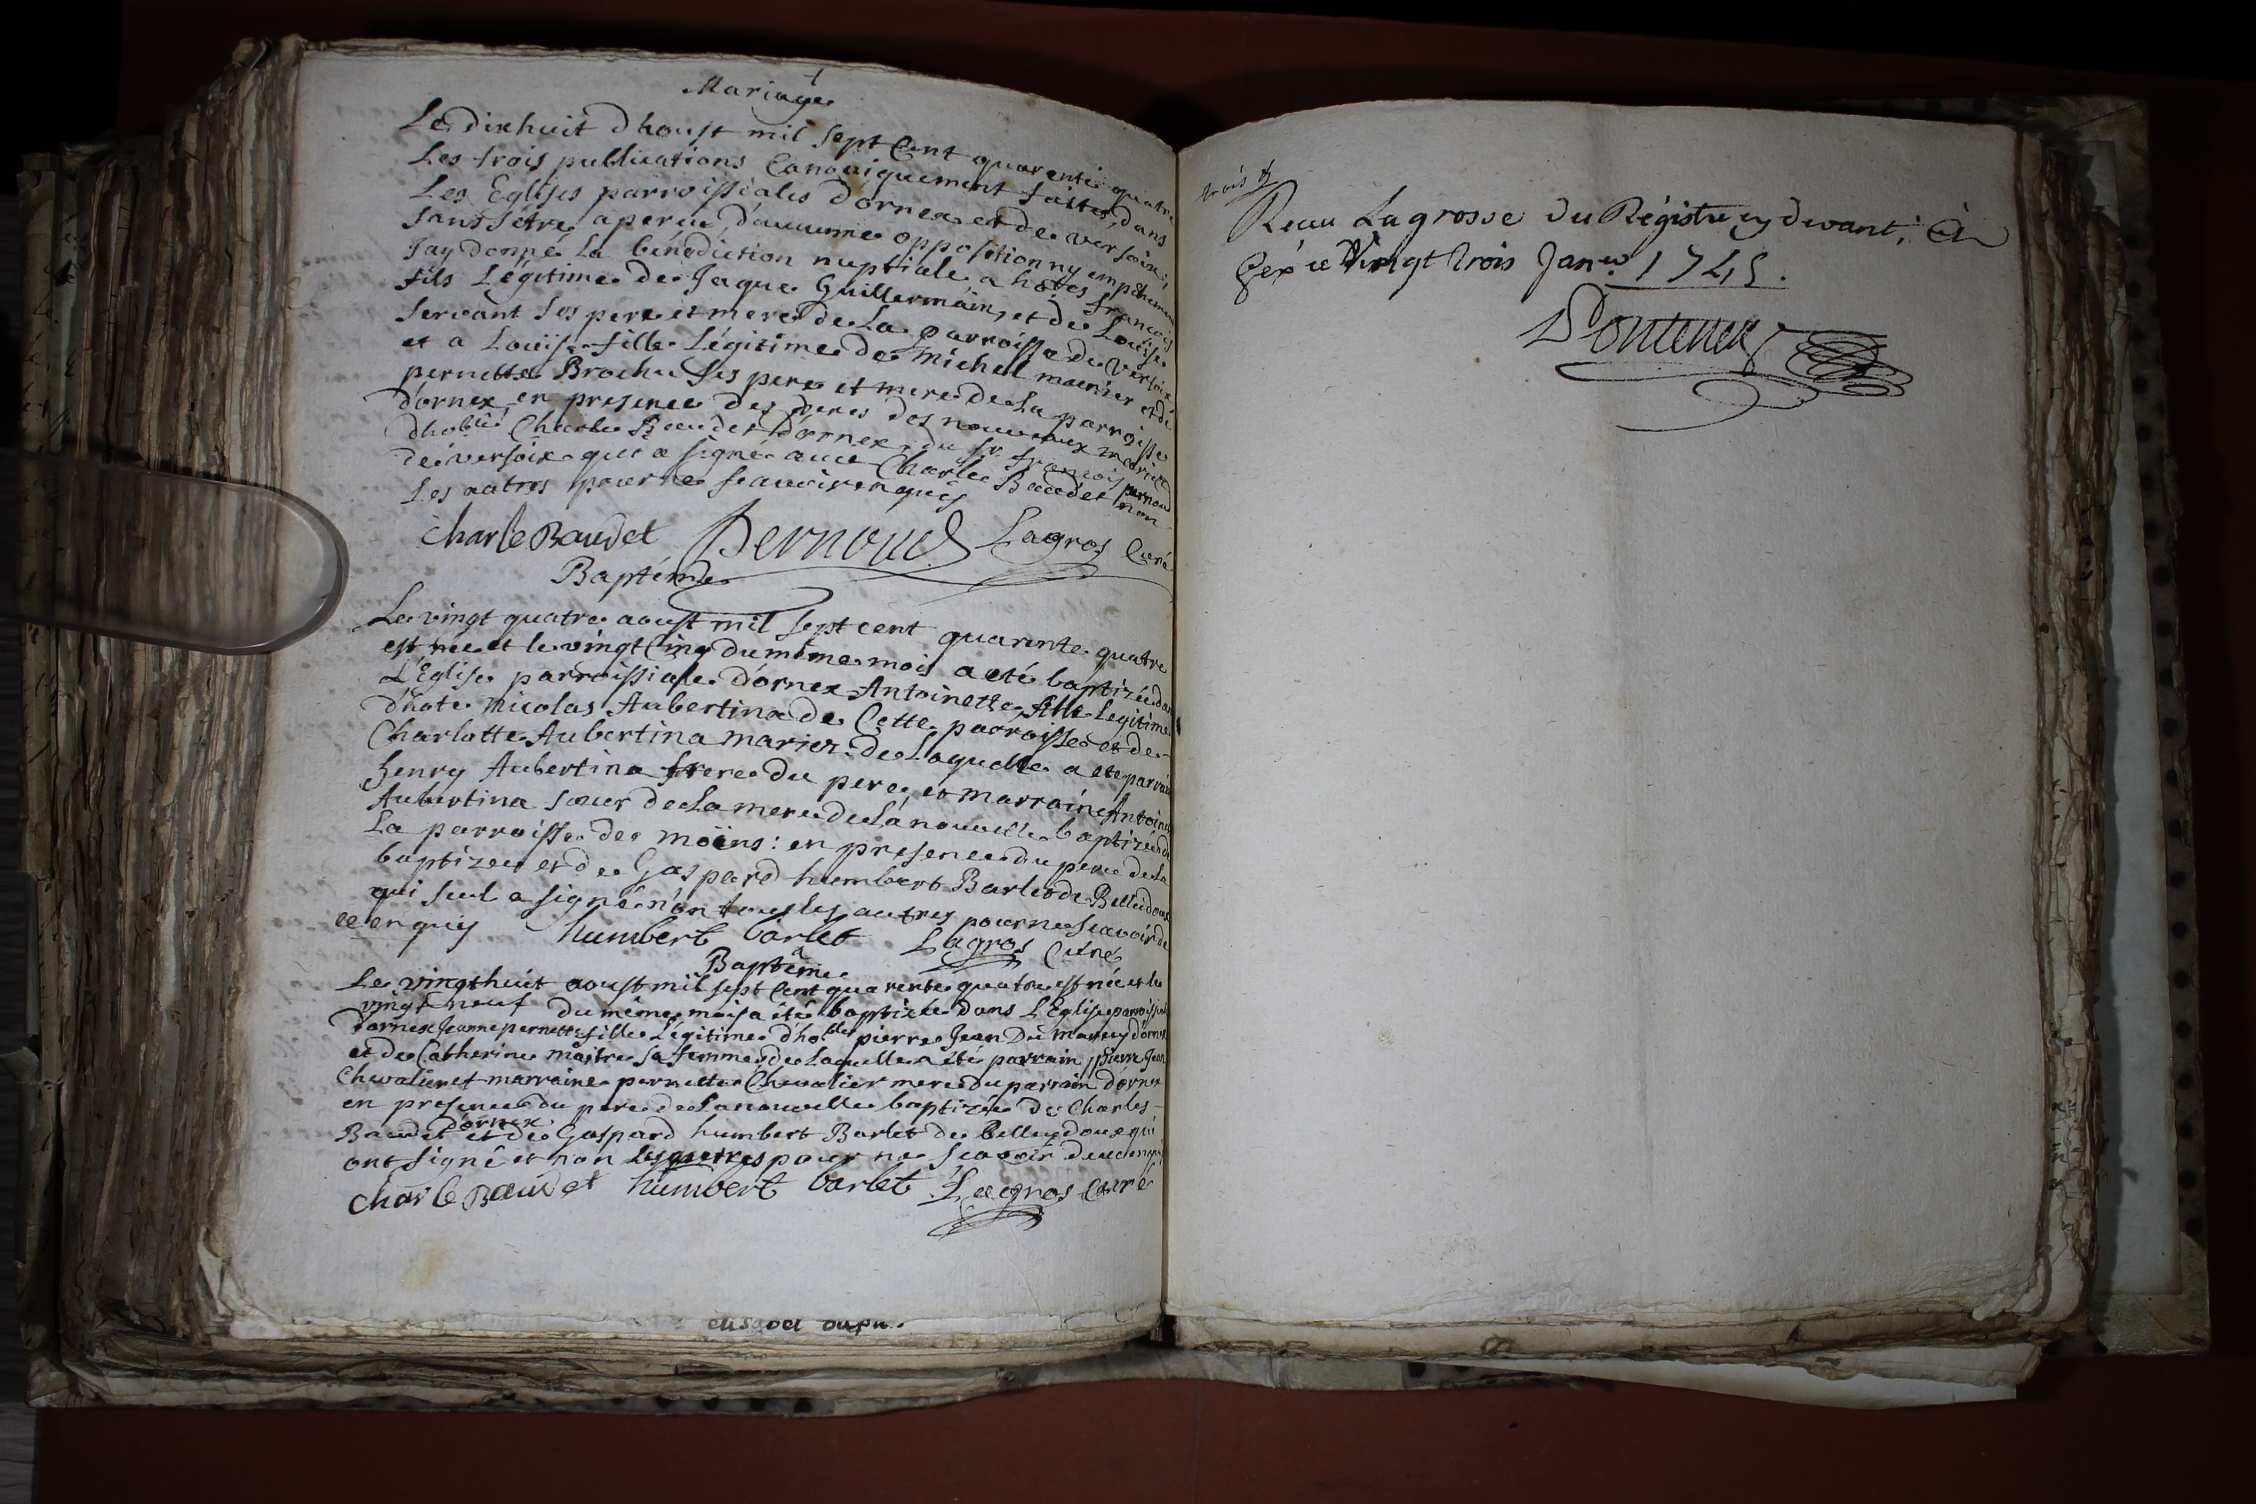 Mariage
Le dixhuit dhoust mil sept Cent quarente quatre
Les trois publications Canoniquement faites dans
Les Eglises parroissiales d'ornex et de versoix,
sans s'être aperçu d'aucune opposition ny empêchement
Jay donné La bénédiction nuptiale a françois
fils Légitime de Jaque Guillermain, et de Louise
servant ses pere et mere de La parroisse de versoix
et a Louise fille Légitime de Michel et de
pernette Brochu ses pere et mere de La parroisse
d'ornex, en presence des peres des nouveaux mariez
d'hoble Charle Baudet d'ornex, du sr. françois pernoud
de versoix qui a signé avec Charle Baudet non
Les autres pour ne scavoir enquis
Charle Baudet Bernoud Lagros Curé
Baptême
Le vingt quatre aoust mil sept cent quarente quatre
est née et le vingt Cinq du même mois a eté baptizée dans
L'Eglise parroissiale d'ornex Antoinette fille legitime
d'hote Nicolas Aubertina de Cette parroisse et de
Charlotte Aubertina mariez. de Laquelle a ete parrain
henry Aubertina frere du pere et marraine Antoine
Aubertina soeur de La mere de La nouvelle baptizée de
La parroisse de moëns : en presence du pere de La
baptizee et de Gaspard humbert Barlet de Belledoux
qui seul a signé non tous les autres pour ne scavoir de
ce enquis humbert barlet Lagros Curé
Baptême
Le vingthuit aoust mil sept Cent quarente quatre est née et le
vingt neuf du même mois a été baptizée dans L'Eglise parroissiale
d'ornex Jeanne pernette fille Légitime d'hoble pierre Jean Du marey d'ornex
et de Catherine maitre sa femme de laquelle a été parrain pierre Jean
Chevalier et marraine pernette Chevalier mere du parrain d'ornex
en presence du pere de La nouvelle baptizée de Charles
Baudet d'ornex et de Gaspard humbert Barlet de Belleydoux qui
ont signé et non les autres pour ne scavoir de ce enquis
Charle Baudet humbert barlet Lagros curé
Reçu La grosse du Régistre cy devant, À
Gex ce Vingt trois Janer. 1745.